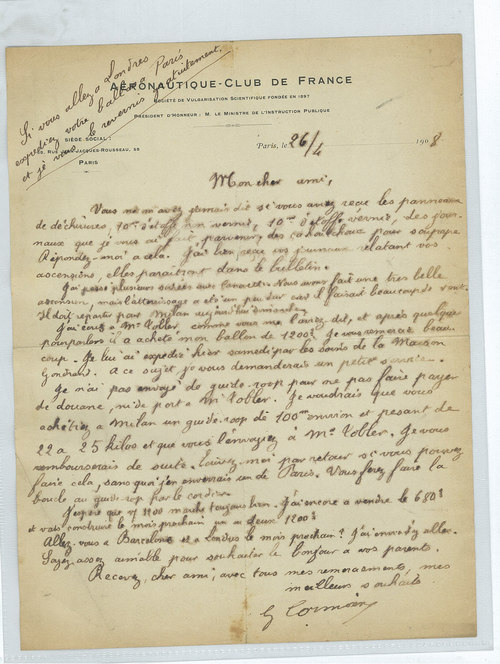 Si vous allez à Londres
expediez votre ballon à Paris
et je vous le revernis gratuitement.
AÉRONAUTIQUE-CLUB DE FRANCE
SOCIÉTÉ DE VULGARISATION SCIENTIFIQUE FONDÉE EN 1897
PRÉSIDENT D'HONNEUR : M. LE MINISTRE DE L'INSTRUCTION PUBLIQUE
SIÈGE SOCIAL :
RUE JEAN-JACQUES-ROUSSEAU, 35
PARIS
Paris, le 26/4 1908
Mon cher ami,
Vous ne m'avez jamais dit si vous aviez reçu les panneaux
de déchirures, 10m d'étoffe non vernie, 10m d'étoffe vernie, des jour-
naux que je vous ai fait parvenir, des caoutchouc pour soupape
Répondez-moi à cela. J'ai bien reçu vos journaux relatant vos
ascensions, elles paraitront dans le bulletin.
J'ai passé plusieurs soirées avec Canovetti. Nous avons fait une très belle
ascension, mais l'atterrissage a été un peu dur car il faisait beaucoup de vent.
Il doit repartir pour Milan aujourd'hui
J'ai écrit à Mr Tobler, comme vous me l'aviez dit, et après quelque
pourparlers il a acheté mon ballon de 1200 3. Je vous remercie beau-
coup. Je lui ai expédié hier samedi par les soins de la Maison
Gondrand. A ce sujet je vous demanderais un petit service.
Je n'ai pas envoyé de guide-rop pour ne pas faire payer
de douane, ni de port à Mr Tobler. Je voudrais que vous
achétiez à Milan un guide-rop de 100m environ et pesant de
22 à 25 kilos et que vous l'envoyez à Mr Tobler. Je vous
rembourserais de suite. Ecrivez-moi par retour si vous pouvez
faire cela, sans quoi j'en enverrais un de Paris. Vous ferez faire la
boucle au guide-rop par le cordier.
J'espère que 1100 marche toujours bien. J'ai encore à vendre le 680 3
et vais construire le mois prochain un ou deux 1200 3
Allez vous à Barcelone et à Londres le mois prochain? J'ai envie d'y aller.
Soyez assez aimable pour souhaiter le bonjour à vos parents.
Recevez, cher ami, avec tous mes remerciements, mes
meilleurs souhaits
G Cormier